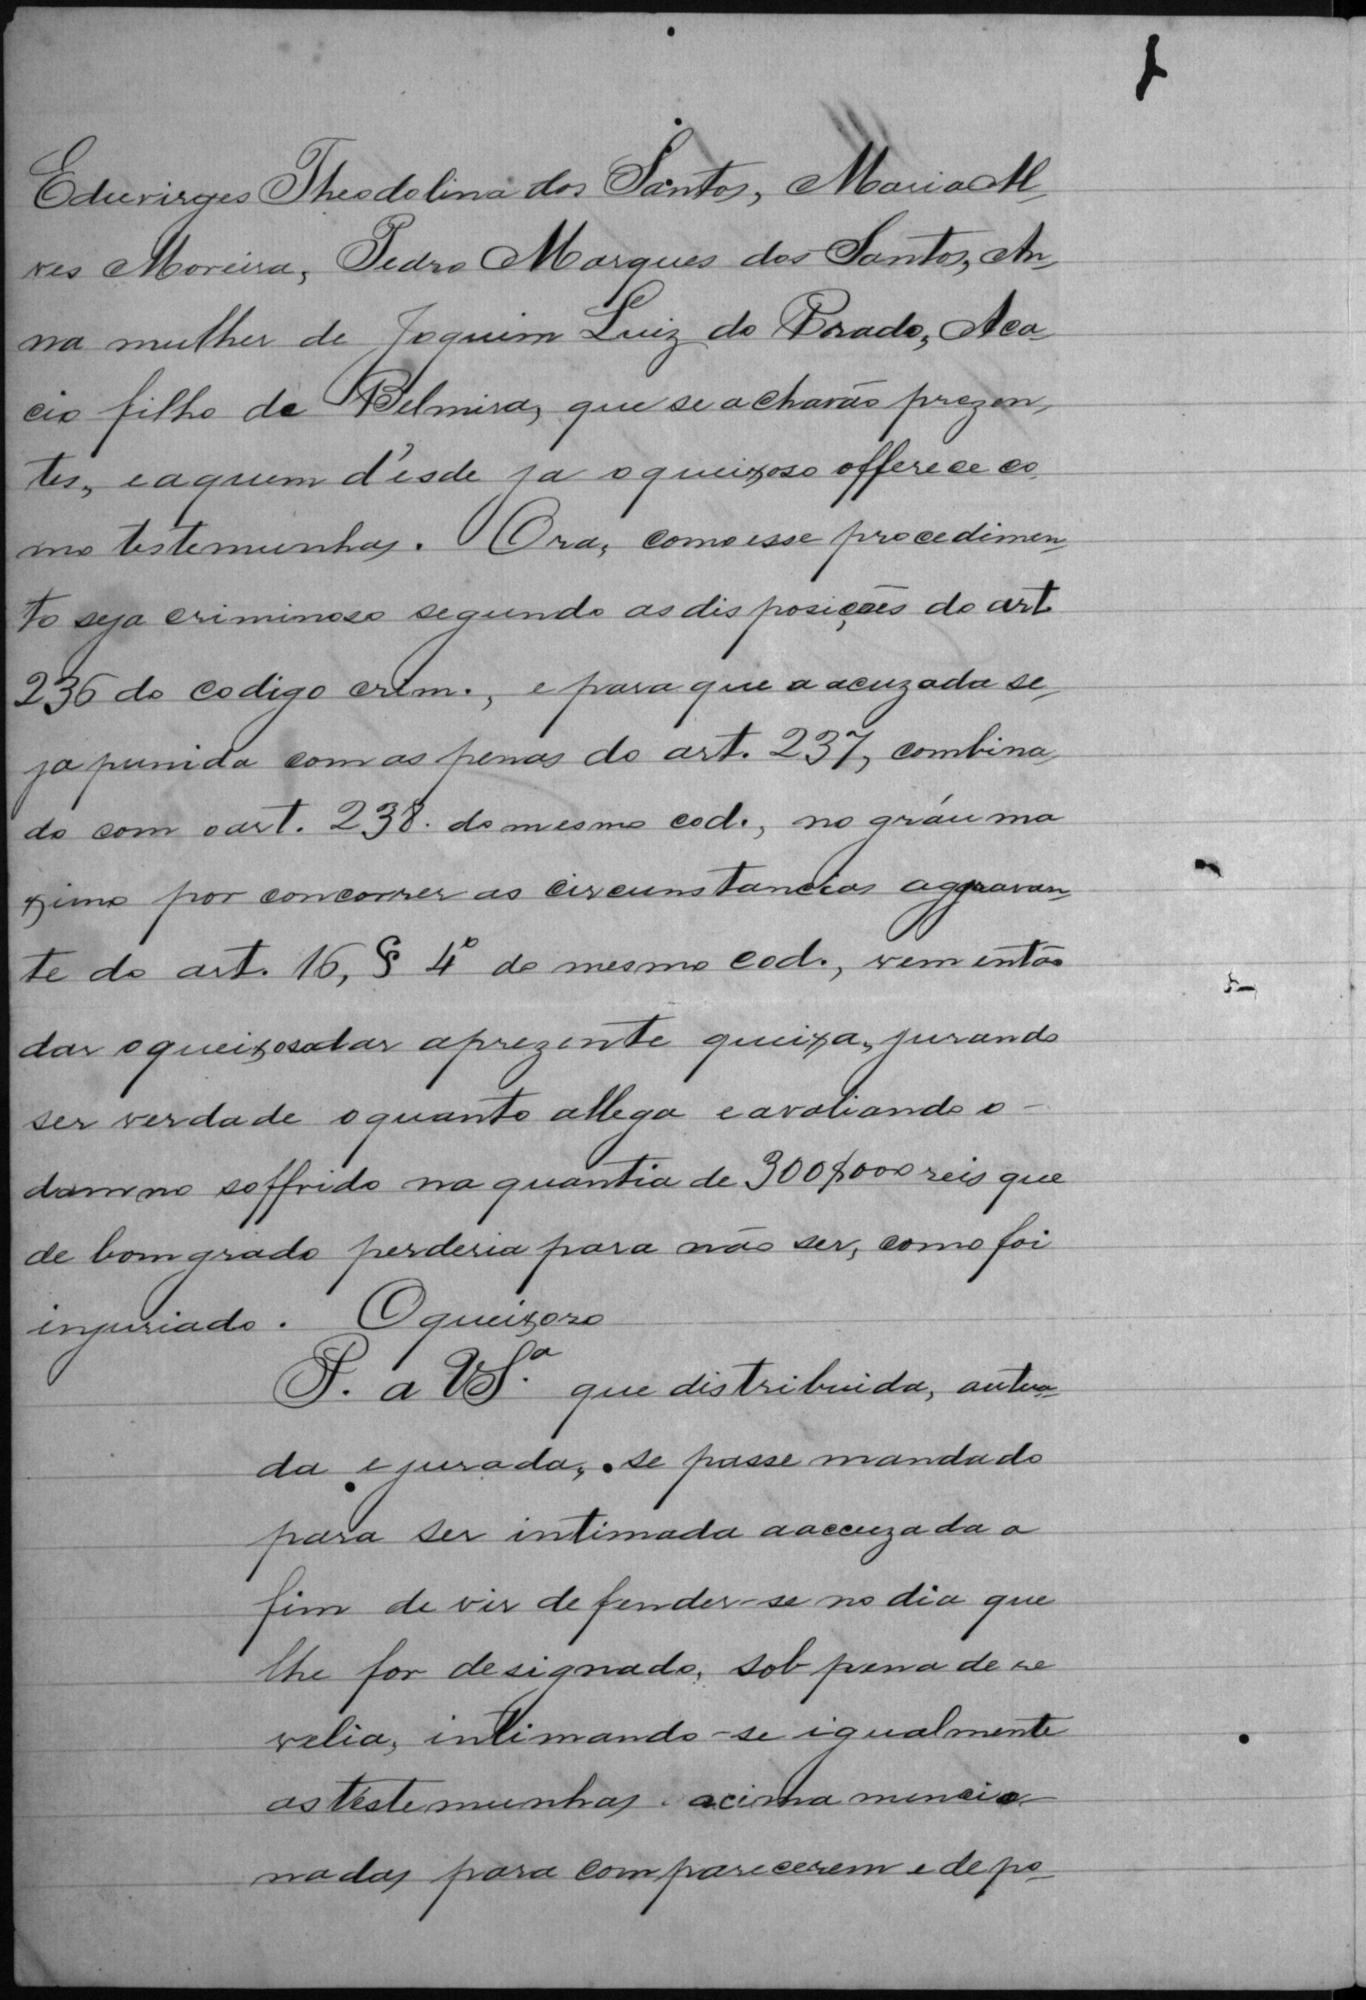 Eduvirges Theodolina dos Santos, Maria Al-
ves Moreira, Pedro Marques dos Santos, An-
na mulher de Joquim Luiz do Prado, Aca-
cio filho de Belmira, que se acharão prezen-
tes, e a quem d'esde ja o queixoso offerece co-
mo testemunhas. Ora, como esse procedimen-
to seja criminoso segundo as disposições do art.
236 do codigo crim., e para que a acuzada se-
ja punida com as penas do art. 237, combina-
do com o art. 238. do mesmo cod., no gráu ma
ximo por concorrer as circunstancias aggravan-
te do art. 16, § 4º do mesmo cod., vem então
dar o queixoso dar a prezente queixa, jurando
ser verdade o quanto allega e avaliando o -
damno soffrido na quantia de 300$000 reis que
de bom grado perderia para não ser, como foi
injuriado. O queixoso
P. a VS.ª que distribuida, autua-
da e jurada, se passe mandado
para ser intimada a accuzada a
fim de vir defender-se no dia que
lhe for designado, sob pena de re
velia, intimando-se igualmente
as testemunhas acima mencio-
nadas para comparecerem e depo-